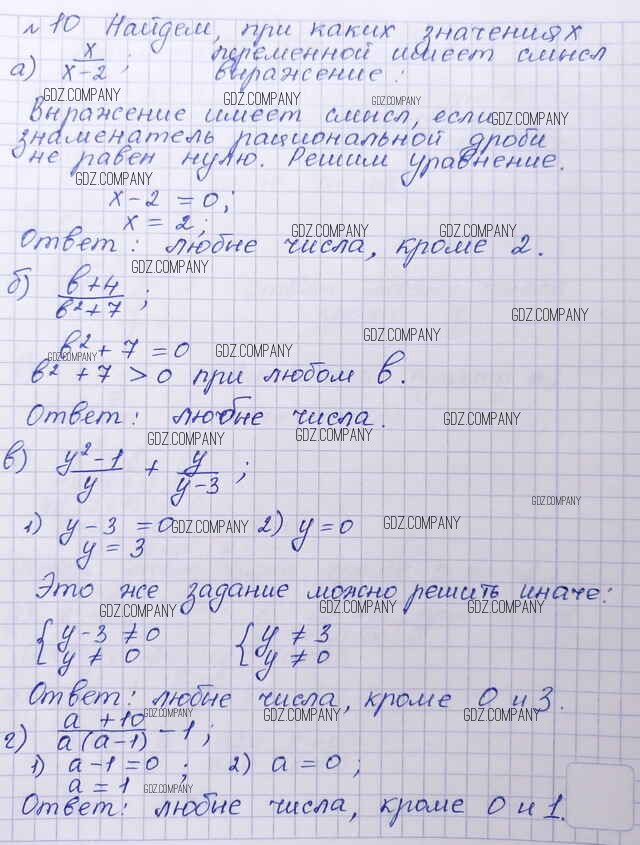 № 10 Найдем, при каких значениях
переменной имеет смысл
выражение:
а) x/(x-2);
GDZ.COMPANY GDZ.COMPANY GDZ.COMPANY
Выражение имеет смысл, если GDZ.COMPANY
знаменатель рациональной дроби
не равен нулю. Решим уравнение.
GDZ.COMPANY
x-2 = 0;
x = 2;
GDZ.COMPANY GDZ.COMPANY
Ответ: любые числа, кроме 2.
GDZ.COMPANY
б) (b+4)/(b²+7);
GDZ.COMPANY
GDZ.COMPANY
b²+7 = 0 GDZ.COMPANY
GDZ.COMPANY
b²+7 > 0 при любом b.
Ответ: любые числа. GDZ.COMPANY
GDZ.COMPANY GDZ.COMPANY
в) (y²-1)/y + y/(y-3);
GDZ.COMPANY
1) y-3 = 0 GDZ.COMPANY 2) y=0 GDZ.COMPANY
y = 3
Это же задание можно решить иначе:
GDZ.COMPANY GDZ.COMPANY GDZ.COMPANY
{ y-3 ≠ 0 { y ≠ 3
y ≠ 0 y ≠ 0
Ответ: любые числа, кроме 0 и 3.
GDZ.COMPANY GDZ.COMPANY GDZ.COMPANY
г) (a+10)/(a(a-1)) - 1;
1) a-1=0; 2) a=0;
a = 1 GDZ.COMPANY
Ответ: любые числа, кроме 0 и 1.